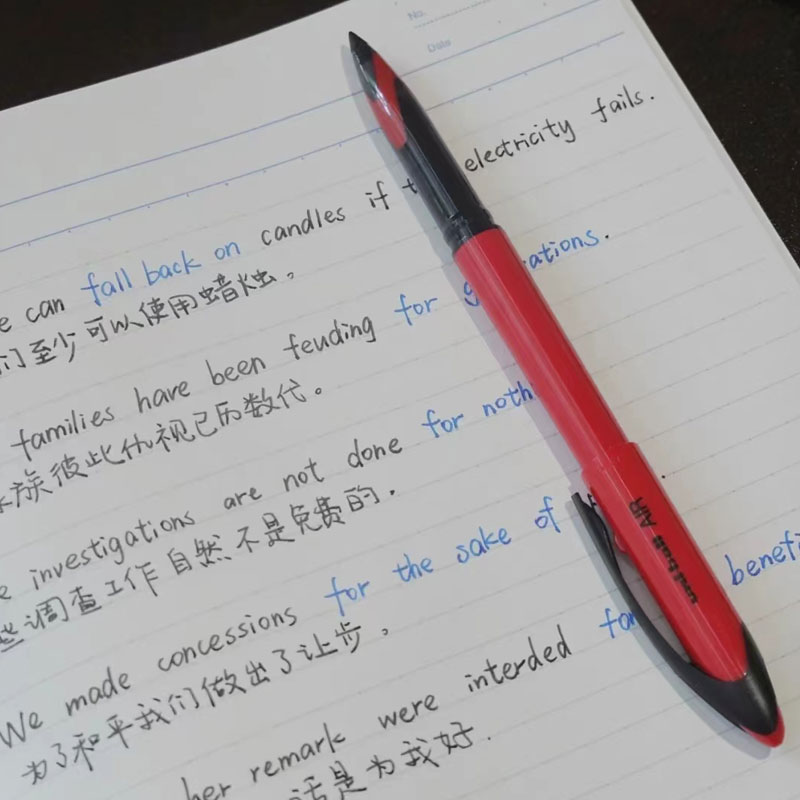 No.
Date
e can fall back on candles if t electricity fails.
们至少可以使用蜡烛。
families have been feuding for g ations.
族彼此仇视已历数代。
e investigations are not done for noth
些调查工作自然不是免费的.
We made concessions for the sake of
为了和平我们做出了让步。
her remark were interded for benefi
话是为我好.
uni-ball AIR